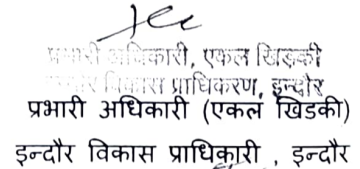 प्रभारी अधिकारी, एकल खिड़की
इन्दौर विकास प्राधिकरण, इन्दौर
प्रभारी अधिकारी (एकल खिडकी)
इन्दौर विकास प्राधिकारी , इन्दौर